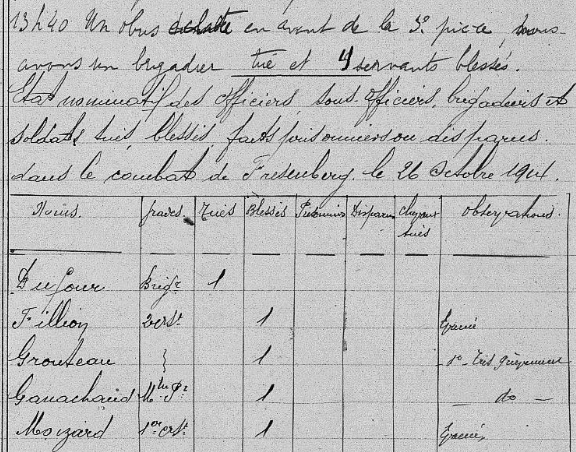 13h40 Un obus éclate en avant de la 3e pièce, nous
avons un brigadier tué et 4 servants blessés.
Etat nominatif des officiers, sous-officiers, brigadiers et
soldats tués, blessés, faits prisonniers ou disparus
dans le combat de Fresenberg le 26 Octobre 1914.
Noms. grades. Tués Blessés Prisonniers Disparus Chevaux tués Observations.
Dufour Brigr 1
Fillion 2e cst 1
Grouteau } 1
Ganachaud Mtre Pr 1 do
Moizard 1er cst 1